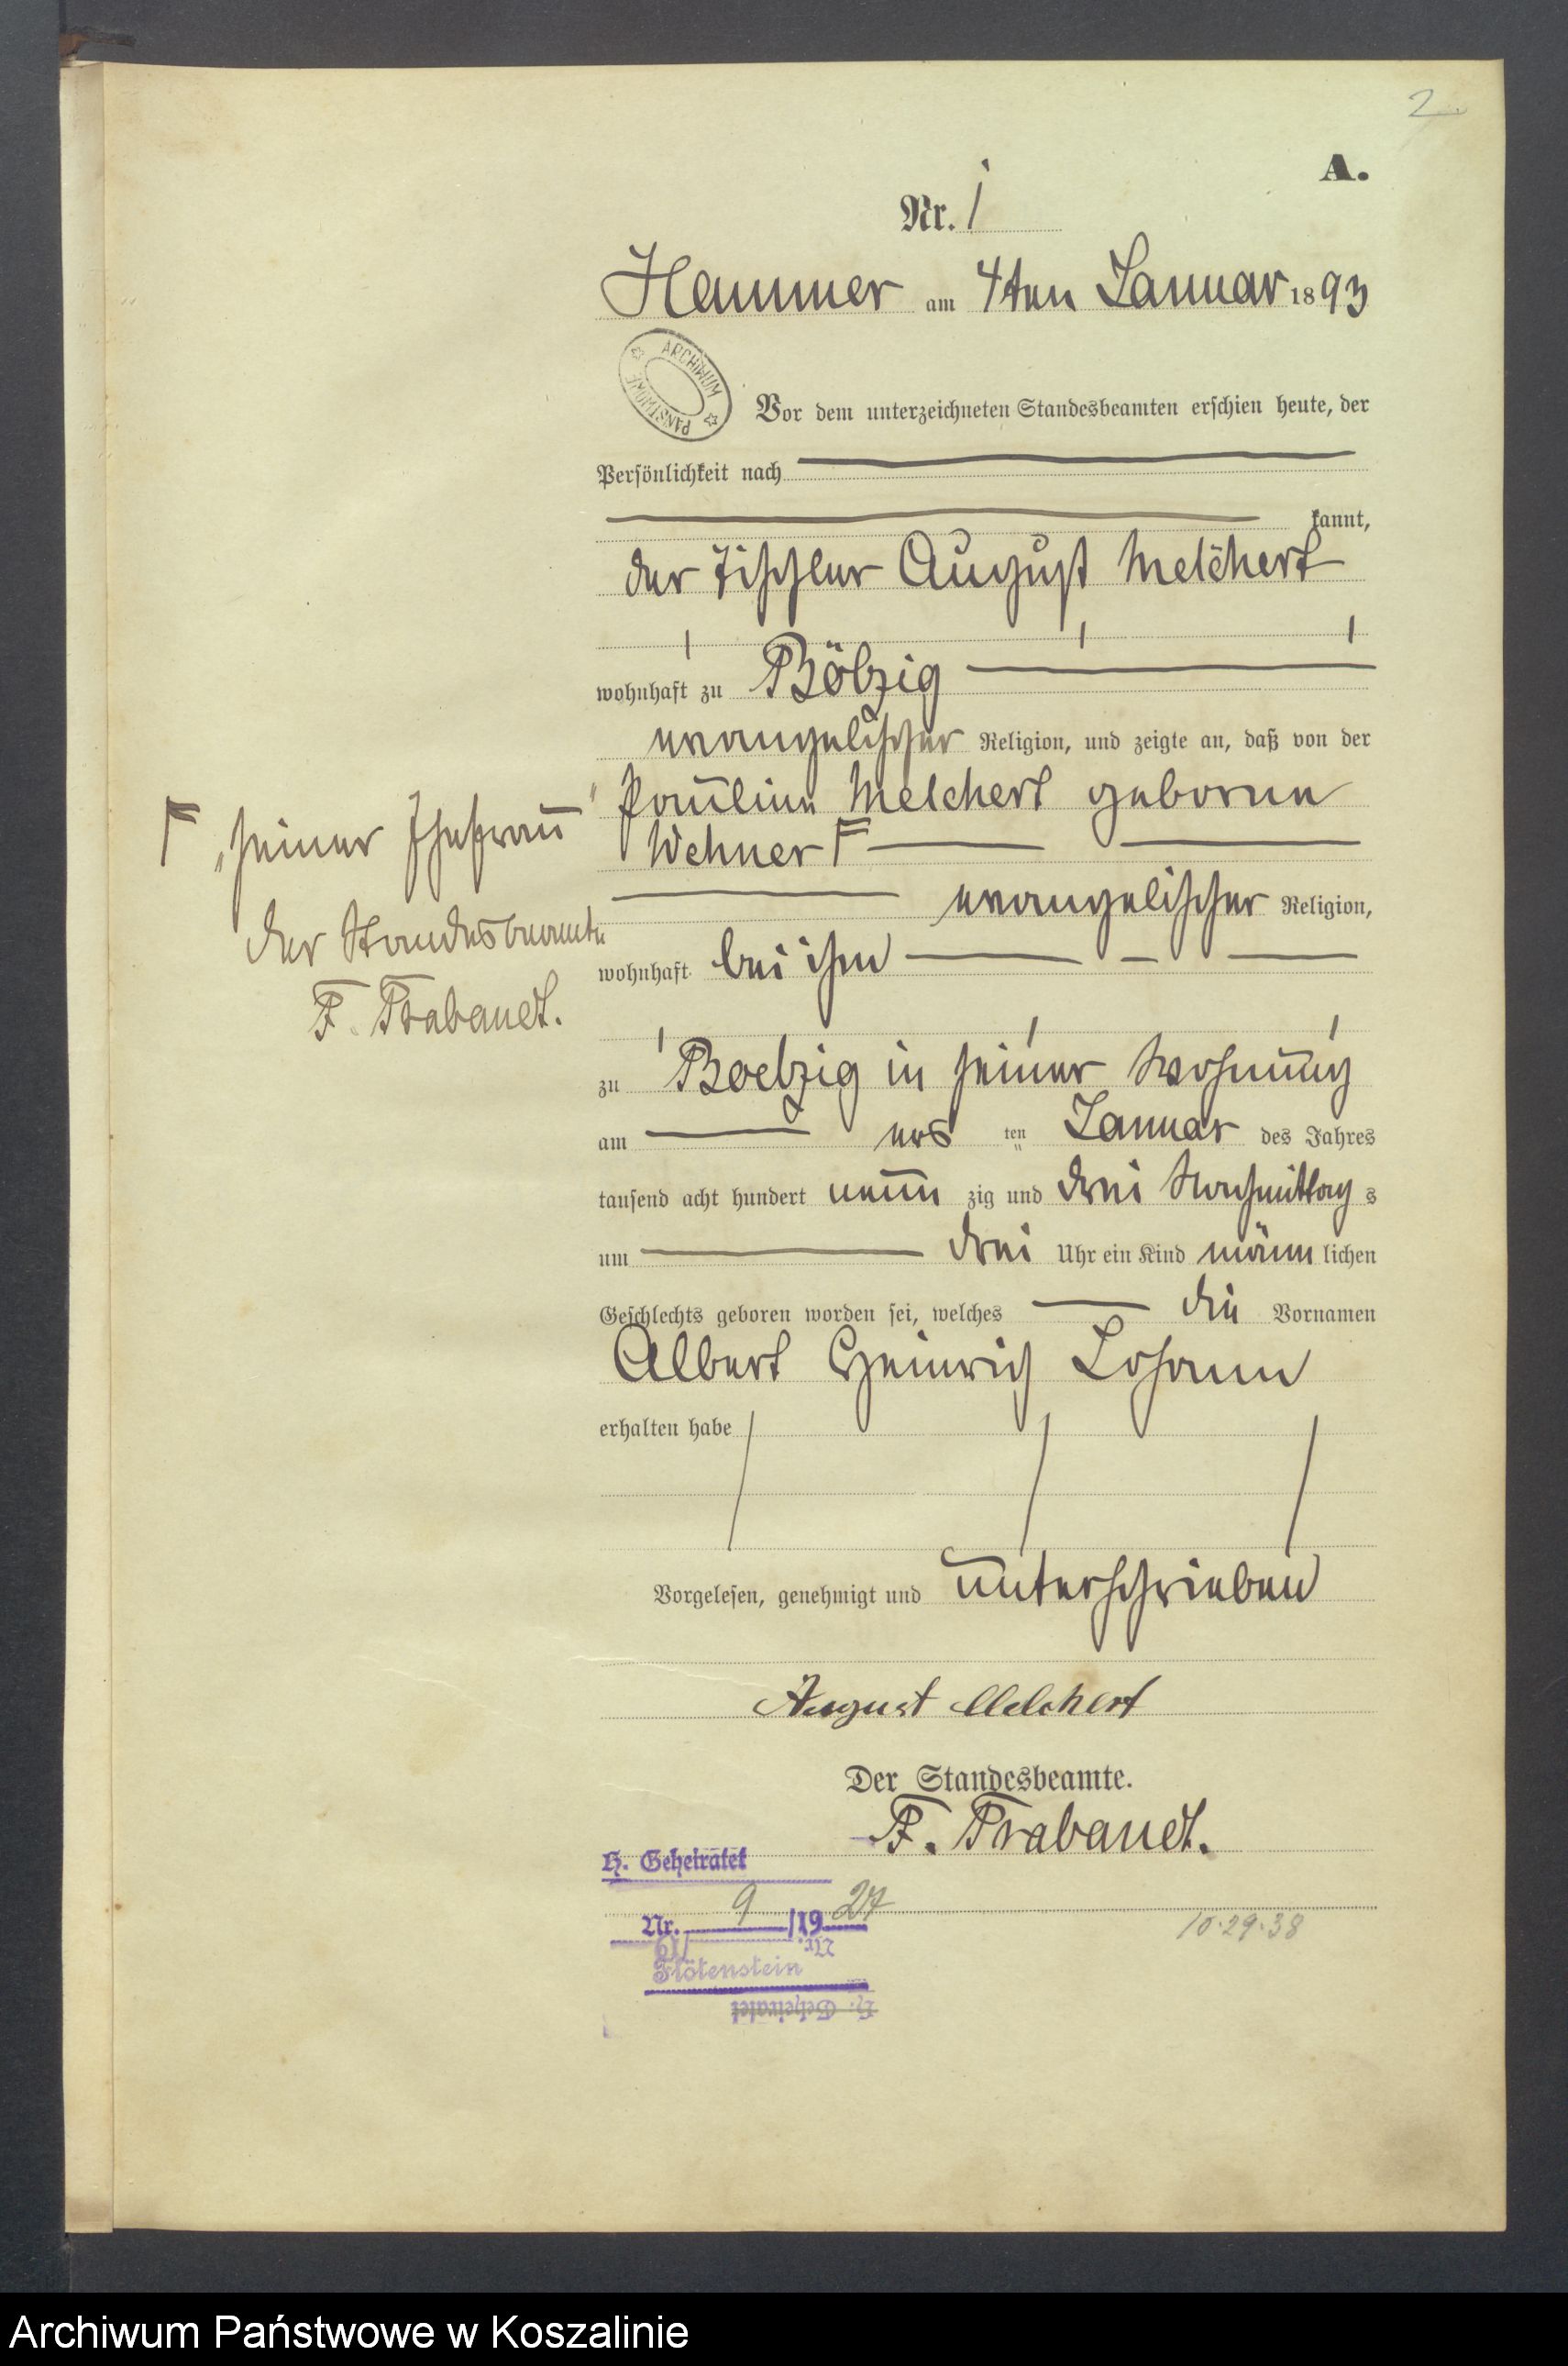 2
A.
Nr. 1
Hammer am 4ten Januar 1893
ARCHIWUM PAŃSTWOWE
Vor dem unterzeichneten Standesbeamten erschien heute, der
Persönlichkeit nach
kannt,
der Tischler August Melchert
wohnhaft zu Bölzig
evangelischer Religion, und zeigte an, daß von der
Pauline Melchert geborne
Wehner F
F „seiner Ehefrau"
evangelischer Religion,
der Standesbeamte
wohnhaft bei ihm
F. Trabandt.
zu Boelzig in seiner Wohnung
am ers ten Januar des Jahres
tausend acht hundert neun zig und drei Nachmittag s
um drei Uhr ein Kind männ lichen
Geschlechts geboren worden sei, welches die Vornamen
Albert Heinrich Johann
erhalten habe
Vorgelesen, genehmigt und unterschrieben
August Melchert
Der Standesbeamte.
F. Trabandt.
H. Geheiratet
Nr. 9 /1927
10.29.38
Nr. /19
Flötenstein
H. Geheiratet
Archiwum Państwowe w Koszalinie